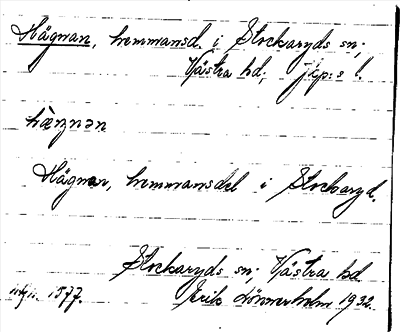 Hägnan, hemmansd. i Stockaryds sn;
Västra hd; jkp:s l.
hægnən
Hägnan, hemmansdel i Stockaryd.
Stockaryds sn; Västra hd
1577. Erik Lönnerholm 1932.